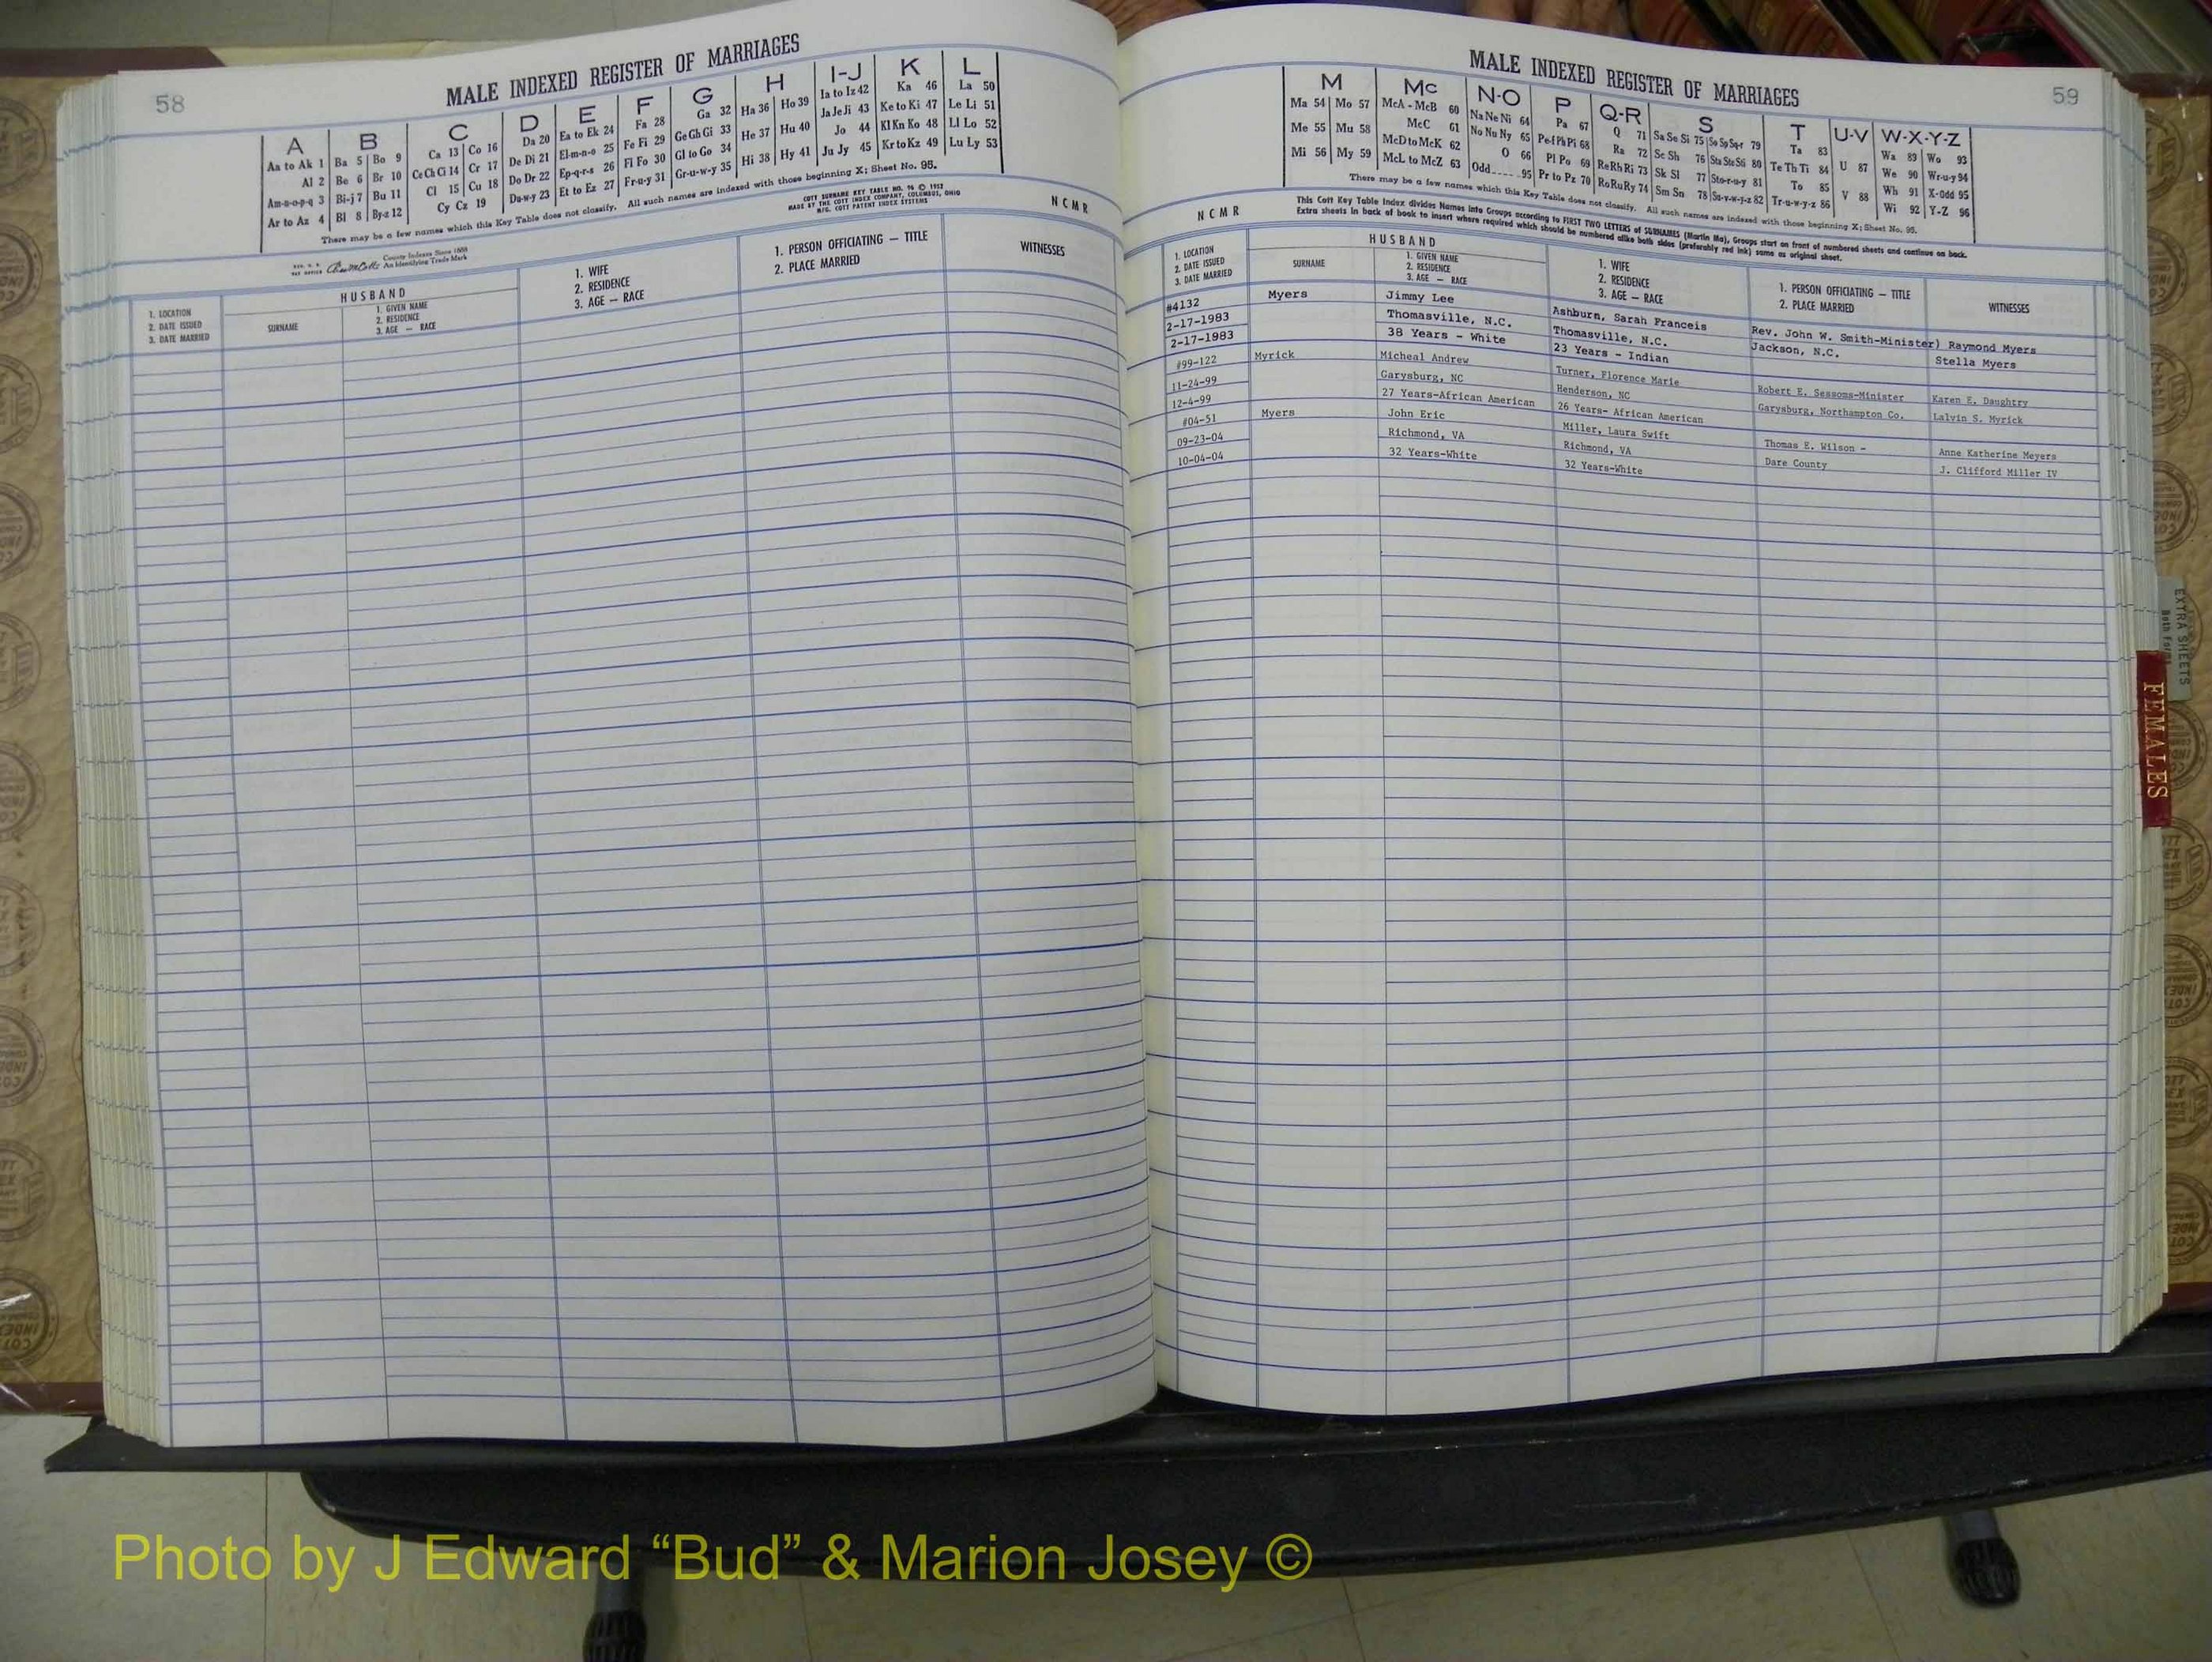 58
MALE INDEXED REGISTER OF MARRIAGES
A B C D E F G H I-J K L
Aa to Ak 1 Ba 5 Bo 9 Ca 13 Co 16 Da 20 Ea to Ek 24 Fa 28 Ga 32 Ha 36 Ho 39 Ia to Iz 42 Ka 46 La 50
Al 2 Be 6 Br 10 Ce Ch Ci 14 Cr 17 De Di 21 El-m-n-o 25 Fe Fi 29 Ge Gh Gi 33 He 37 Hu 40 Ja Je Ji 43 Ke to Ki 47 Le Li 51
Am-n-o-p-q 3 Bi-j 7 Bu 11 Cl 15 Cu 18 Do Dr 22 Ep-q-r-s 26 Fl Fo 30 Gl to Go 34 Hi 38 Hy 41 Jo 44 Kl Kn Ko 48 Ll Lo 52
Ar to Az 4 Bl 8 By-z 12 Cy Cz 19 Du-w-y 23 Et to Ez 27 Fr-u-y 31 Gr-u-w-y 35 Ju Jy 45 Kr to Kz 49 Lu Ly 53
There may be a few names which this Key Table does not classify. All such names are indexed with those beginning X; Sheet No. 95.
County Indexes Since 1888
An Identifying Trade Mark
COTT SURNAME KEY TABLE NO. 96 © 1912
MADE BY THE COTT INDEX COMPANY, COLUMBUS, OHIO
MFG. COTT PATENT INDEX SYSTEMS
N C M R
1. LOCATION
2. DATE ISSUED
3. DATE MARRIED
HUSBAND
SURNAME
1. GIVEN NAME
2. RESIDENCE
3. AGE — RACE
1. WIFE
2. RESIDENCE
3. AGE — RACE
1. PERSON OFFICIATING — TITLE
2. PLACE MARRIED
WITNESSES
MALE INDEXED REGISTER OF MARRIAGES
59
M Mc N-O P Q-R S T U-V W-X-Y-Z
Ma 54 Mo 57 McA - McB 60 Na Ne Ni 64 Pa 67 Q 71 Sa Se Si 75 So Sp Sq-r 79 Ta 83 U 87 Wa 89 Wo 93
Me 55 Mu 58 McC 61 No Nu Ny 65 Pe-f Ph Pi 68 Ra 72 Sc Sh 76 Sta Ste Sti 80 Te Th Ti 84 V 88 We 90 Wr-u-y 94
Mi 56 My 59 McD to McK 62 O 66 Pl Po 69 Re Rh Ri 73 Sk Sl 77 Sto-r-u-y 81 To 85 Wh 91 X-Odd 95
McL to McZ 63 Odd 95 Pr to Pz 70 Ro Ru Ry 74 Sm Sn 78 Su-v-w-y-z 82 Tr-u-w-y-z 86 Wi 92 Y-Z 96
There may be a few names which this Key Table does not classify. All such names are indexed with those beginning X; Sheet No. 95.
N C M R
This Cott Key Table Index divides Names into Groups according to FIRST TWO LETTERS of SURNAMES (Martin Ma), Groups start on front of numbered sheets and continue on back.
Extra sheets in back of book to insert where required which should be numbered alike both sides (preferably red ink) same as original sheet.
1. LOCATION
2. DATE ISSUED
3. DATE MARRIED
HUSBAND
SURNAME
1. GIVEN NAME
2. RESIDENCE
3. AGE — RACE
1. WIFE
2. RESIDENCE
3. AGE — RACE
1. PERSON OFFICIATING — TITLE
2. PLACE MARRIED
WITNESSES
#4132 Myers Jimmy Lee Ashburn, Sarah Franceis Rev. John W. Smith-Minister) Raymond Myers
2-17-1983 Thomasville, N.C. Thomasville, N.C. Jackson, N.C. Stella Myers
2-17-1983 38 Years - White 23 Years - Indian
#99-122 Myrick Micheal Andrew Turner, Florence Marie Robert E. Sessoms-Minister Karen E. Daughtry
11-24-99 Garysburg, NC Henderson, NC Garysburg, Northampton Co. Lalvin S. Myrick
12-4-99 27 Years-African American 26 Years- African American
#04-51 Myers John Eric Miller, Laura Swift Thomas E. Wilson - Anne Katherine Meyers
09-23-04 Richmond, VA Richmond, VA Dare County J. Clifford Miller IV
10-04-04 32 Years-White 32 Years-White
EXTRA SHEETS
FEMALES
Photo by J Edward “Bud” & Marion Josey ©